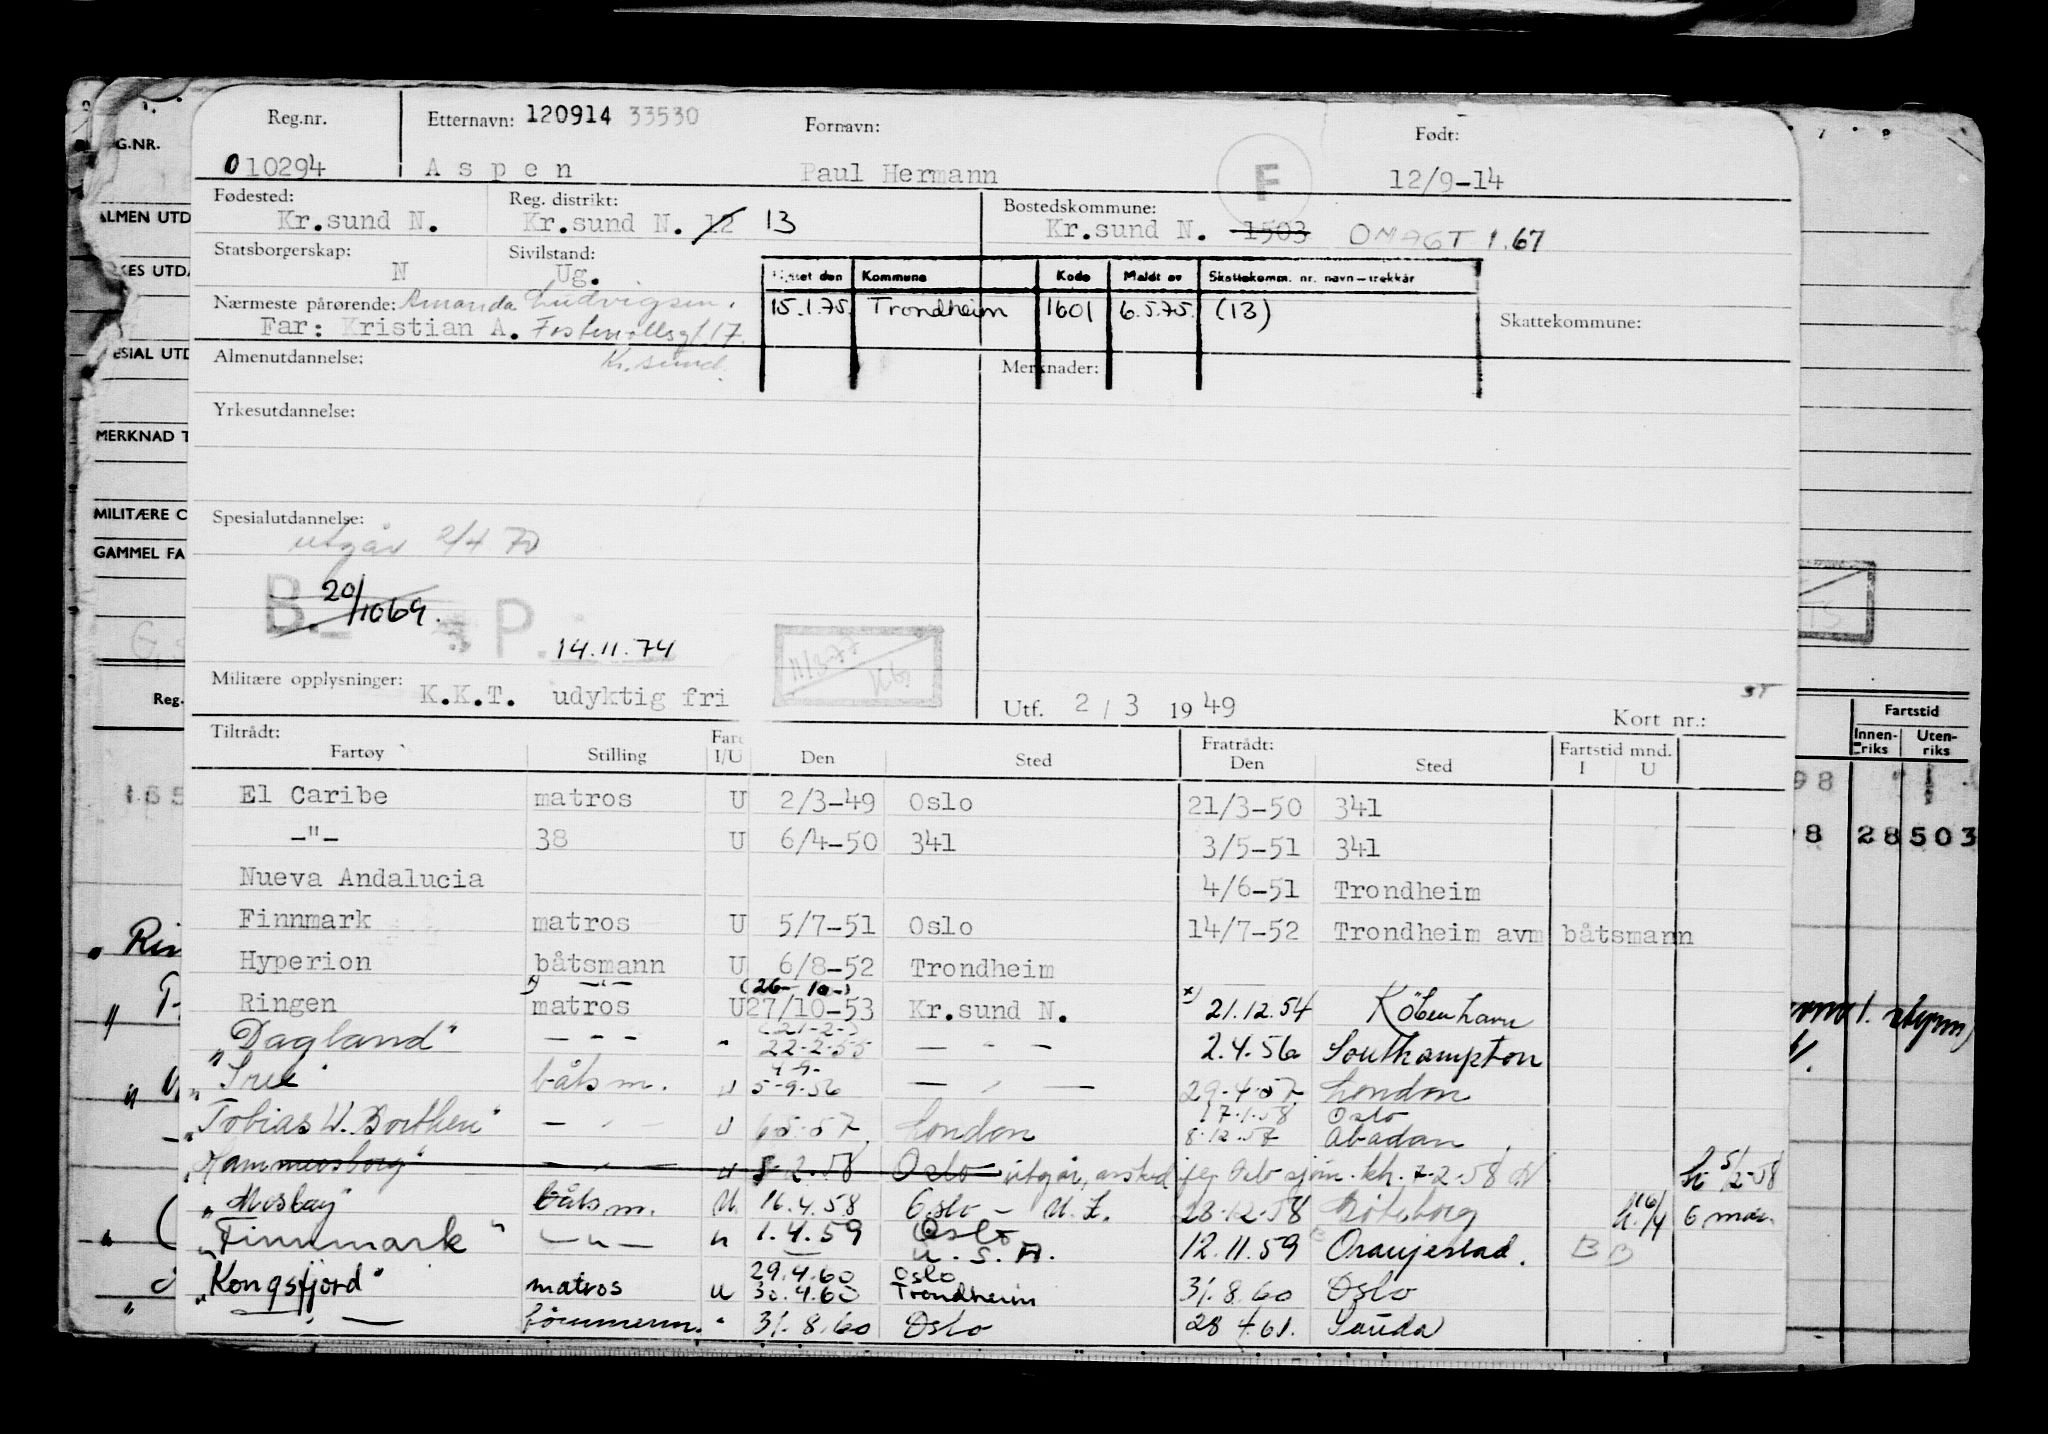 Reg.nr. Etternavn: 120914 33530 Fornavn: Født:
010294 Aspen Paul Hermann F 12/9-14
Fødested: Reg. distrikt: Bostedskommune:
Kr.sund N. Kr.sund N. 12 13 Kr.sund N. 1503 OMAGT 1.67
Statsborgerskap: Sivilstand:
N Ug.
den Kommune Kode Meldt av Skattekomm. nr. navn-trekkår
Nærmeste pårørende: Amanda Ludvigsen. 15.1.75. Trondheim 1601 6.5.75. (13)
Far: Kristian A. 17. Skattekommune:
Almenutdannelse: Kr.sund. Merknader:
Yrkesutdannelse:
Spesialutdannelse:
utgår 2/4 70
B. 20/10 69. P. 14.11.74
11/3-77
Militære opplysninger: K.K.T. udyktig fri Utf. 2/3 1949 Kort nr.:
Tiltrådt: Fratrådt: Fartstid mnd.
Fartøy Stilling I/U Den Sted Den Sted I U
El Caribe matros U 2/3-49 Oslo 21/3-50 341
-"- 38 U 6/4-50 341 3/5-51 341
Nueva Andalucia 4/6-51 Trondheim
Finnmark matros U 5/7-51 Oslo 14/7-52 Trondheim avm båtsmann
Hyperion båtsmann U 6/8-52 Trondheim
x) -"- (26- 10-)
Ringen matros U 27/10-53 Kr.sund N. x) 21.12.54 København
(21-2-)
"Dagland" - - - " 22-2-55 - - - 2.4.56 Southampton
4-9-
båtsm. u 5-9-56 - " - 29.4.57. London
17.1.58 Oslo
"Tobias U. Borthen" - " - u 6.5.57 London 8.12.57 Abadan
"Hammersborg" - " - u 8-2.58 Oslo utgår, 7-2-58 5/2-58
båtsm. U. 16.4.58 Oslo - 28-12-58 Göteborg 16/4 6 mdr.
"Finnmark" - " - u 1.4.59 Oslo U.S.A. 12.11.59 Oranjestad. B B
29.4.60 Oslo
"Kongsfjord" matros u 30.4.60 Trondheim 31.8.60 Oslo
- " - tömmerm. " 31.8.60 Oslo 28.4.61. Sauda
G.NR.
ALMEN UTD
KES UTDA
ESIAL UTD
MERKNAD T
MILITÆRE O
GAMMEL FA
Reg.
Fartstid
Innen-riks Uten-riks
98
8 28 503